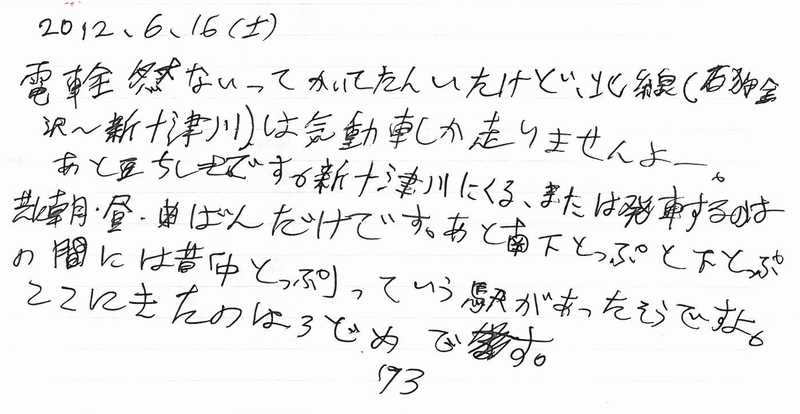 2012、6、16(土)
電車全然ないってかいてたんいたけど、北線(石狩金
沢〜新十津川)は気動車しか走りませんよー。
あと豆ちしきですが新十津川にくる、または発車するのは
朝・昼・ばんだけです。あと南下とっぷと下とっぷ
の間には昔「中とっぷ」っていう駅があったそうですよ。
ここにきたのは3どめです。
'73